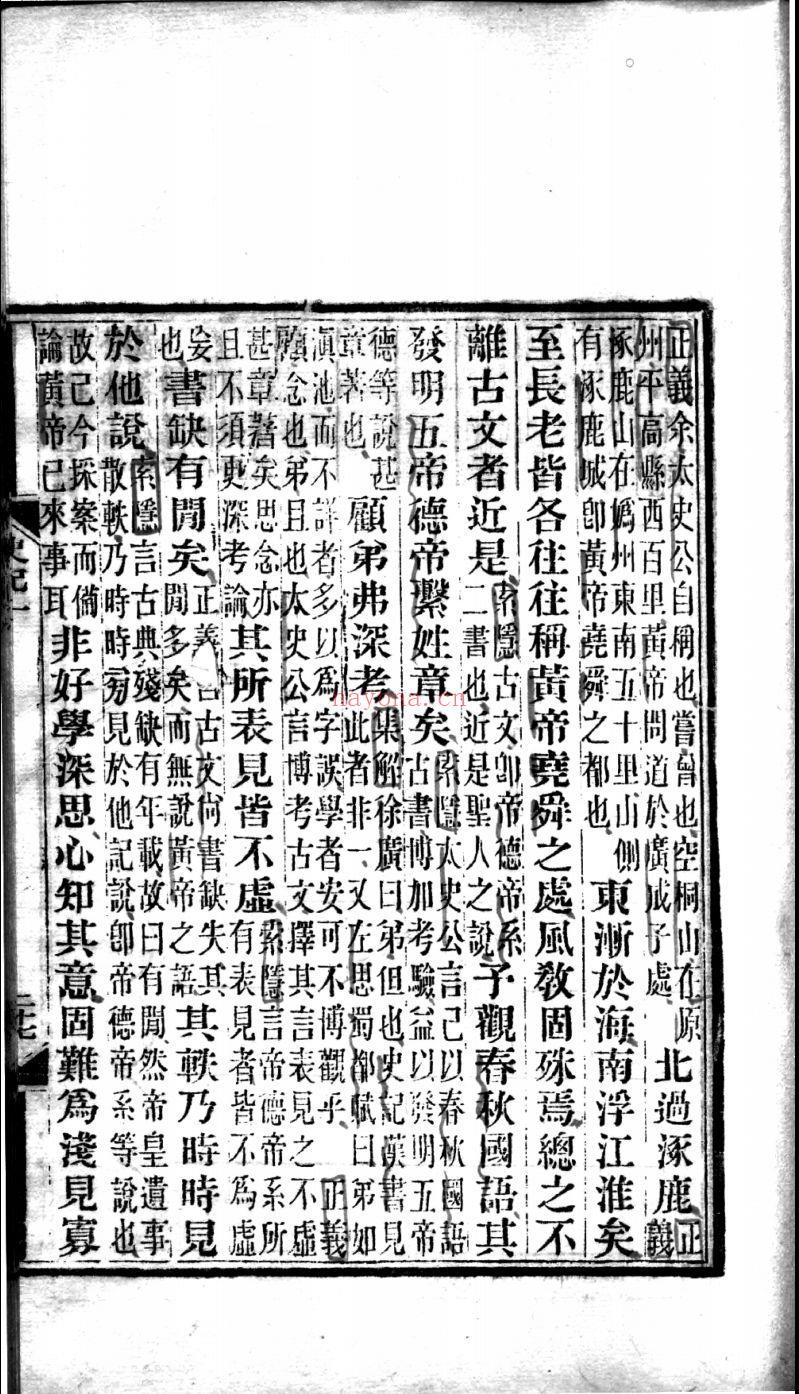 正義余太史公自稱也嘗曾也空桐山在原州平高縣西百里黃帝問道於廣成子處北過涿鹿正義
涿鹿山在嬀州東南五十里山側有涿鹿城卽黃帝堯舜之都也東漸於海南浮江淮矣
至長老皆各往往稱黃帝堯舜之處風敎固殊焉總之不
離古文者近是索隱古文卽帝德帝系二書也近是聖人之說予觀春秋國語其
發明五帝德帝繫姓章矣索隱太史公言己以春秋國語古書博加考驗益以發明五帝
德等說甚章著也顧弟弗深考集解徐廣曰弟但也史記漢書見此者非一又左思蜀都賦曰弟如
滇池而不詳者多以爲字誤學者安可不博觀乎正義顧念也弟且也太史公言博考古文擇其言表見之不虛
甚章著矣思念亦且不須更深考論其所表見皆不虛索隱言帝德帝系所有表見者皆不爲虛
妄也書缺有閒矣正義言古文尚書缺失其閒多矣而無說黃帝之語其軼乃時時見
於他說索隱言古典殘缺有年載故曰有閒然帝皇遺事散軼乃時時旁見於他記說卽帝德帝系等說也
故己今採案而備論黃帝已來事耳非好學深思心知其意固難爲淺見寡
史記一
二十七
nayona.cn